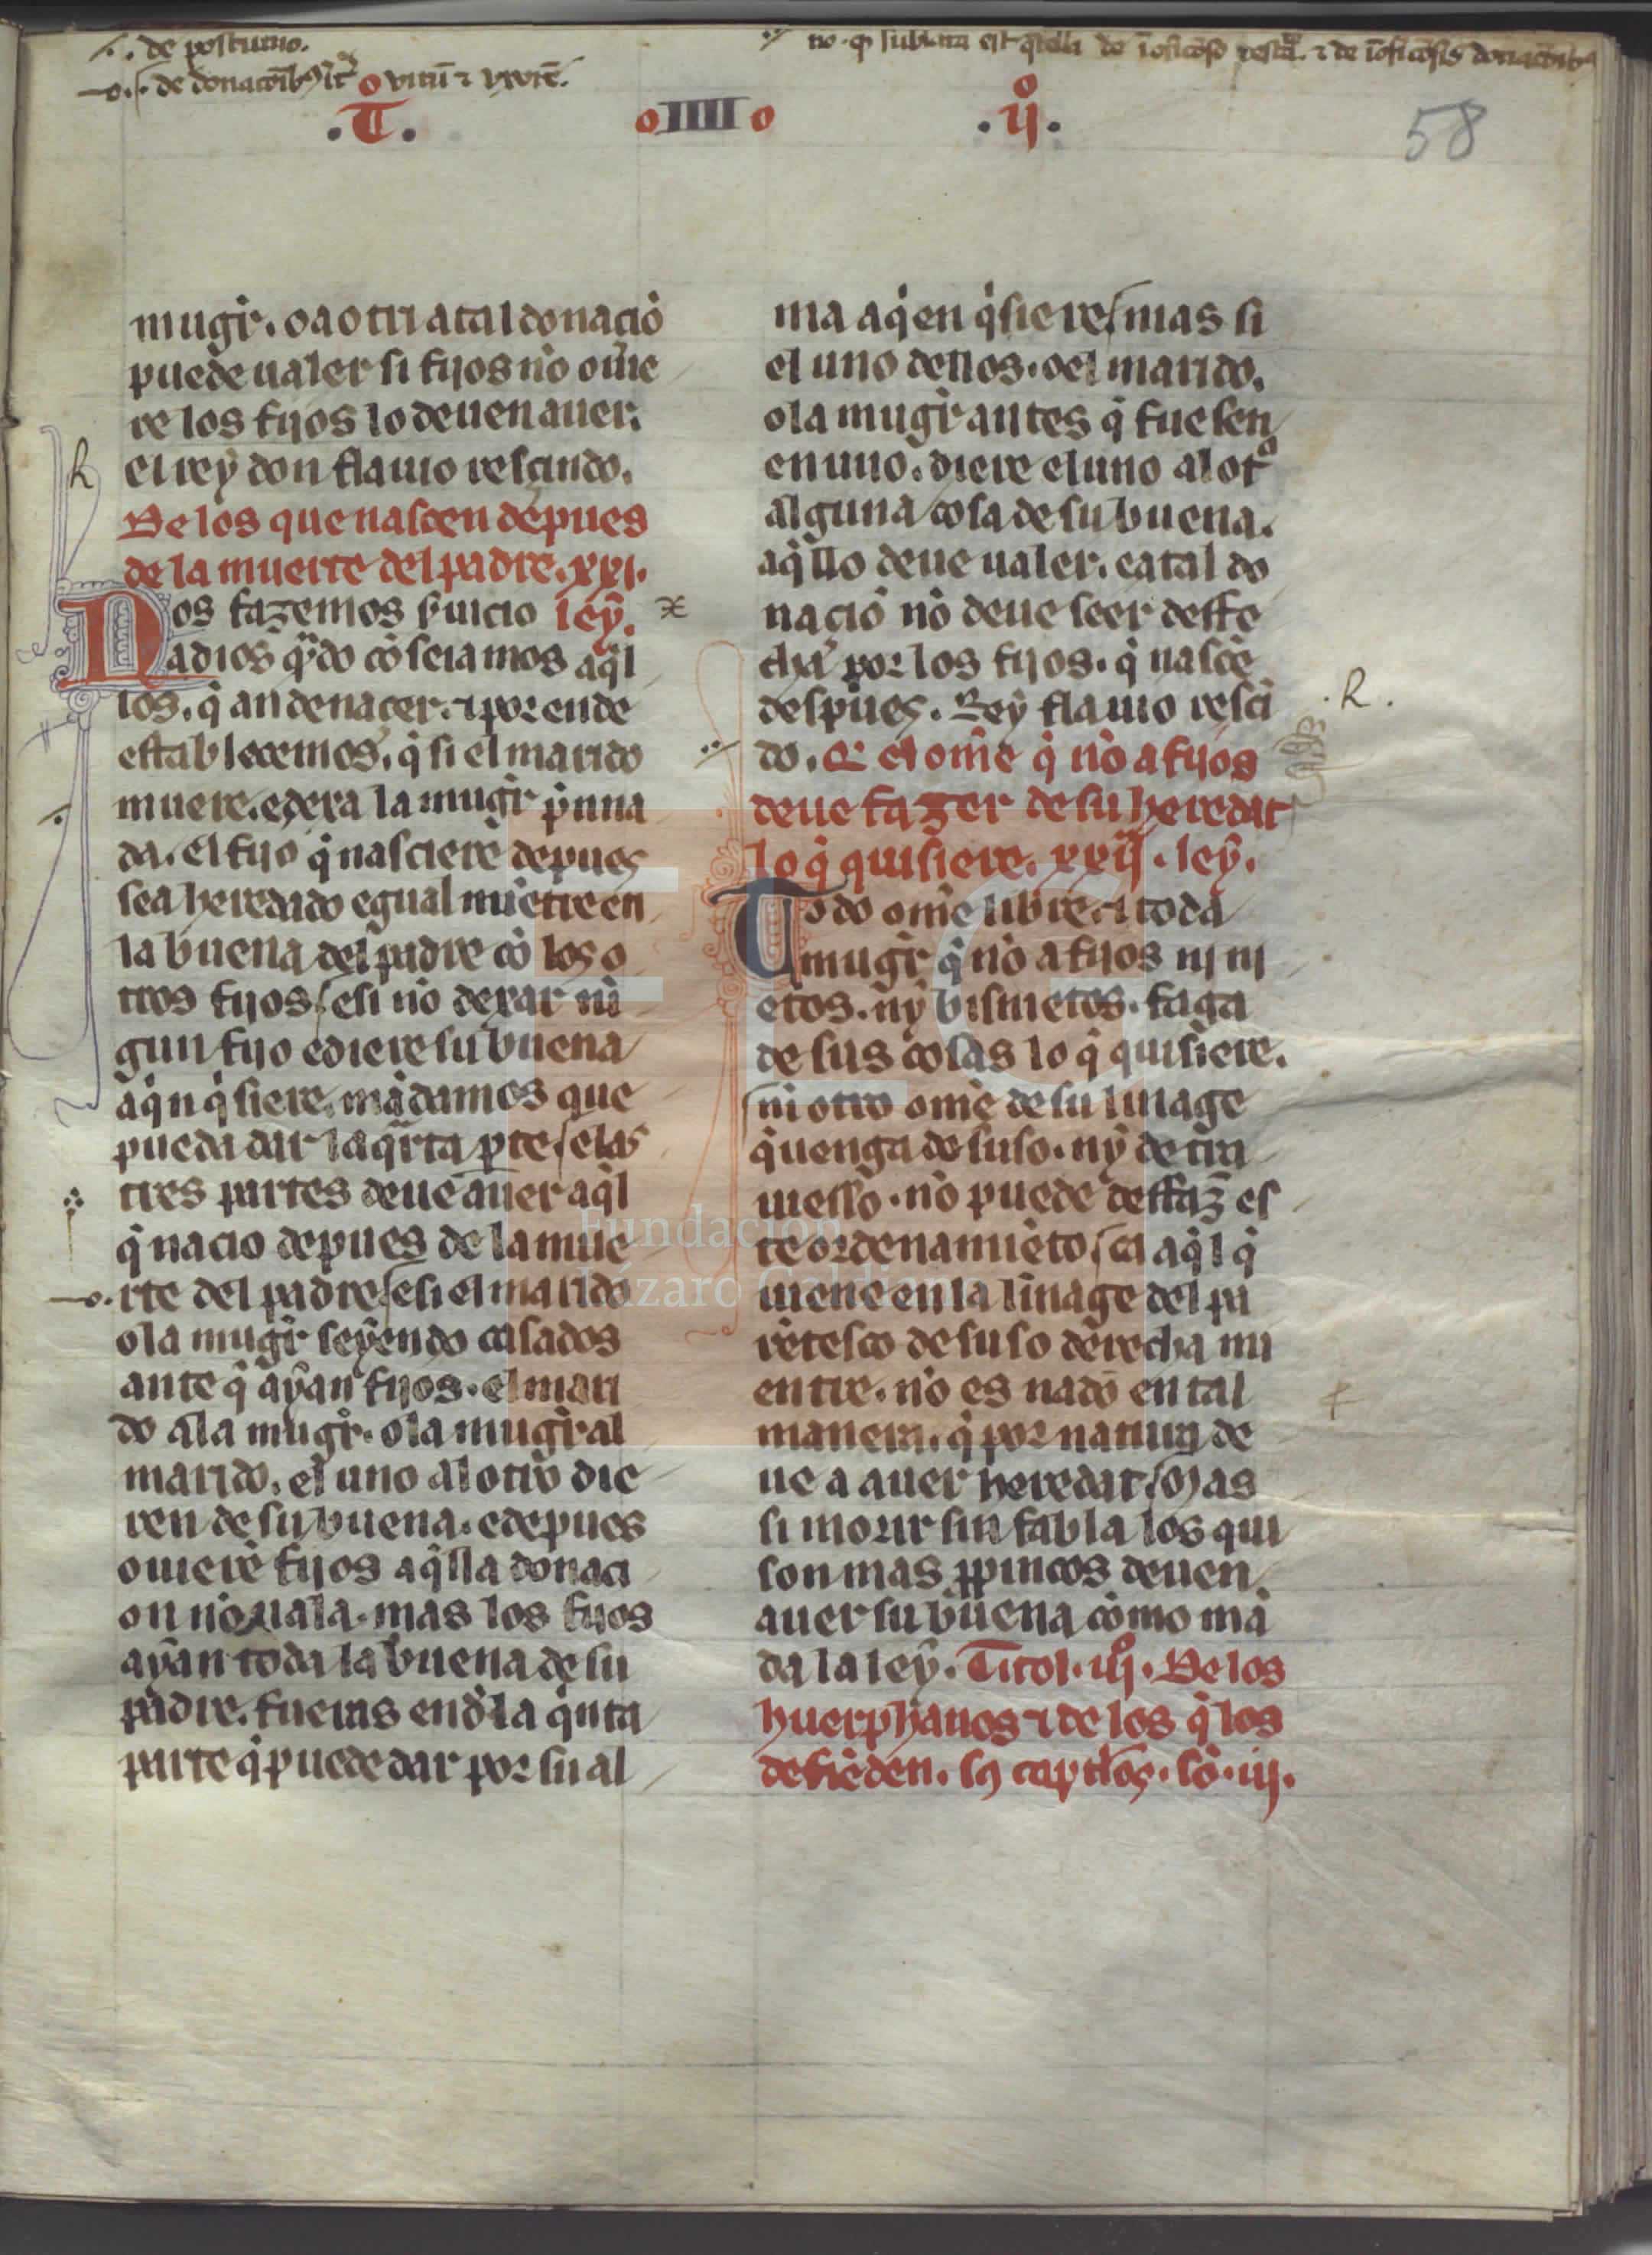 de postumo.
de donacoib9 it virū ⁊ vxorē.
no. qͥ sublata est qͣrella de iōficōso testo. ⁊ de iōficōsis donacōib9
.T. IIII .ij.
58
mugͥr. o a otri atal donacio
puede ualer si fijos nō ouie
re los fijos lo deuen auer.
R
el rey don flauio rescindo.
De los que nascen depues
de la muerte del padre. xxi.
Nos fazemos ẜuicio ley.
a dios qͣndo cōseiamos aqͥl
los. qͥ an de nacer. ⁊ por ende
establecemos. qͥ si el marido
muere. e dexa la mugͥr pͥnna
da. el fijo qͥ nasciere depues
sea heredado egual miētre en
la buena del padre cō los o
tros fijos e si nō dexar nī
gun fijo e diere su buena
aqͥn qͥsiere. mādamos que
pueda dar la qͣrta ꝑte e las
tres partes deue auer aqͥl
qͥ nacio depues de la mue
rte del padre e si el marido
o la mugͥr seyendo casados
ante qͥ ayan fijos. el mari
do a la mugͥr. o la mugͥr al
marido. el uno al otro die
ren de su buena. e depues
ouierē fijos aqͥlla donaci
on nō uala. mas los fijos
ayan toda la buena de su
padre. fueras end la qͥnta
parte qͥ puede dar por su al
ma a qͥen qͥsiere mas si
el uno dellos. o el marido.
o la mugͥr antes qͥ fuesen
en uno. diere el uno al otͦ
alguna cosa de su buena.
aqͥllo deue ualer. ca tal do
nacio nō deue seer deffe
cha por los fijos. qͥ nascē
despues. Rey flauio resci
R.
do. Q el ome qͥ nō a fijos
deue fazer de su heredat
lo qͥ quisiere. xxij. ley.
Todo ome libre. ⁊ toda
mugͥr qͥ nō a fijos ni ni
etos. ny bisnietos. faga
de sus cosas lo qͥ quisiere.
ni otro ome de su linage
qͥ uenga de suso. ny de tra
uesso. nō puede deffaz es
te ordenamiēto ca aqͥl qͥ
uiene en la linage del pa
rētesco de suso derecha mi
entre. nō es nado en tal
manera. qͥ por natura de
ue a auer heredat Mas
si morir sin fabla los qui
son mas ꝓpincos deuen
auer su buena como mā
da la ley. Titol. iij. De los
huerphanos ⁊ de los qͥ los
defiēden. s9 captlos. sō. iij.
Fundación
Lázaro Galdiano